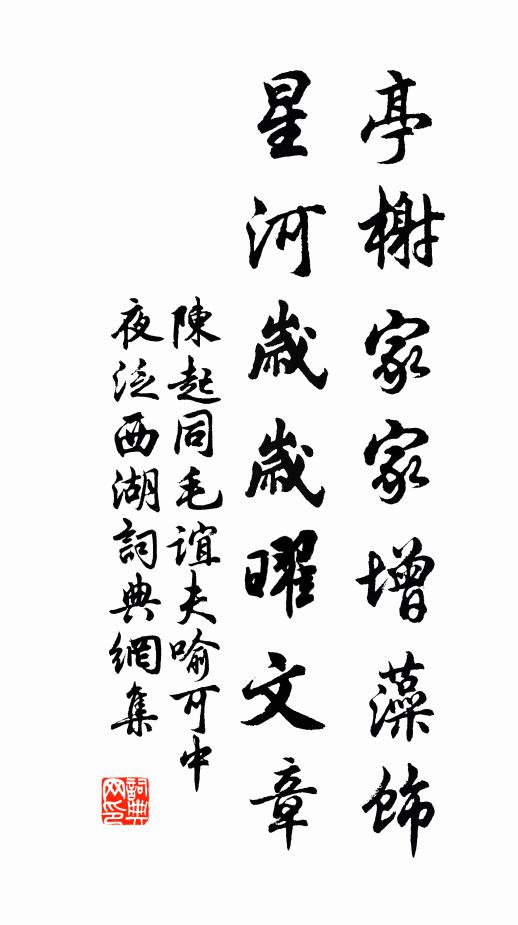 亭榭家家增藻飾
星河歲歲曜文章
陳起同毛誼夫喻可中
夜泛西湖詞典網集
詞典网印